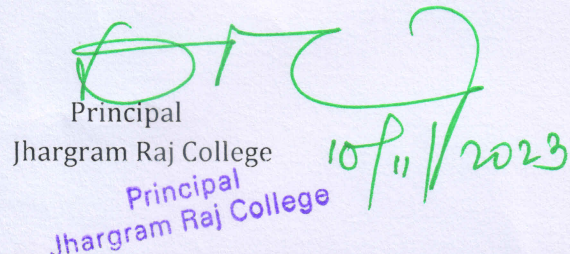 Principal
Jhargram Raj College
10/11/2023
Principal
Jhargram Raj College